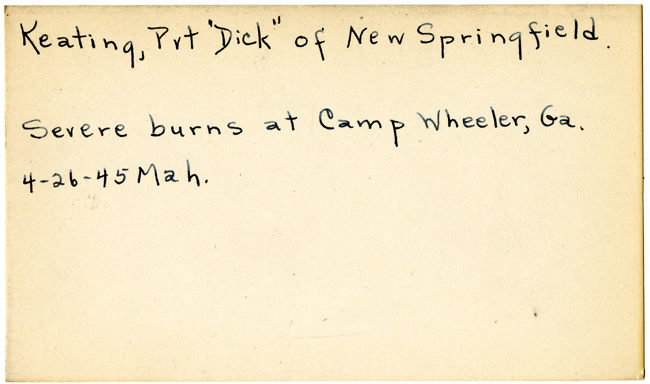 Keating, Pvt "Dick" of New Springfield.
Severe burns at Camp Wheeler, Ga.
4-26-45 Mah.